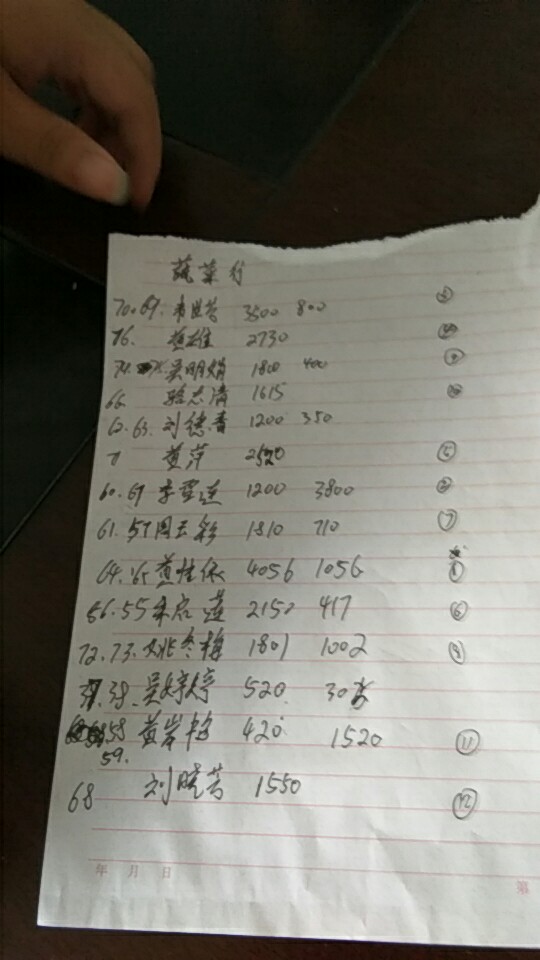 蔬菜行
70.69. 3500 800 ③
76. 黄雄 2730
吴明娟 1800 400
66 骆志清 1615
62.63. 刘德青 1200 350
71 黄萍 ⑤
60.69 李雪莲 1200 3800 ②
61.57 周玉彩 1810 710 ⑦
64.65 黄性依 4056 1056
56.55 朱启莲 2150 417 ⑥
72.73. 姚冬梅 1801 1002 ⑨
38. 吴婷婷 520
58 黄岸梅 420 1520 ⑪
59.
68 刘晓芳 1550 ⑫
年 月 日 第